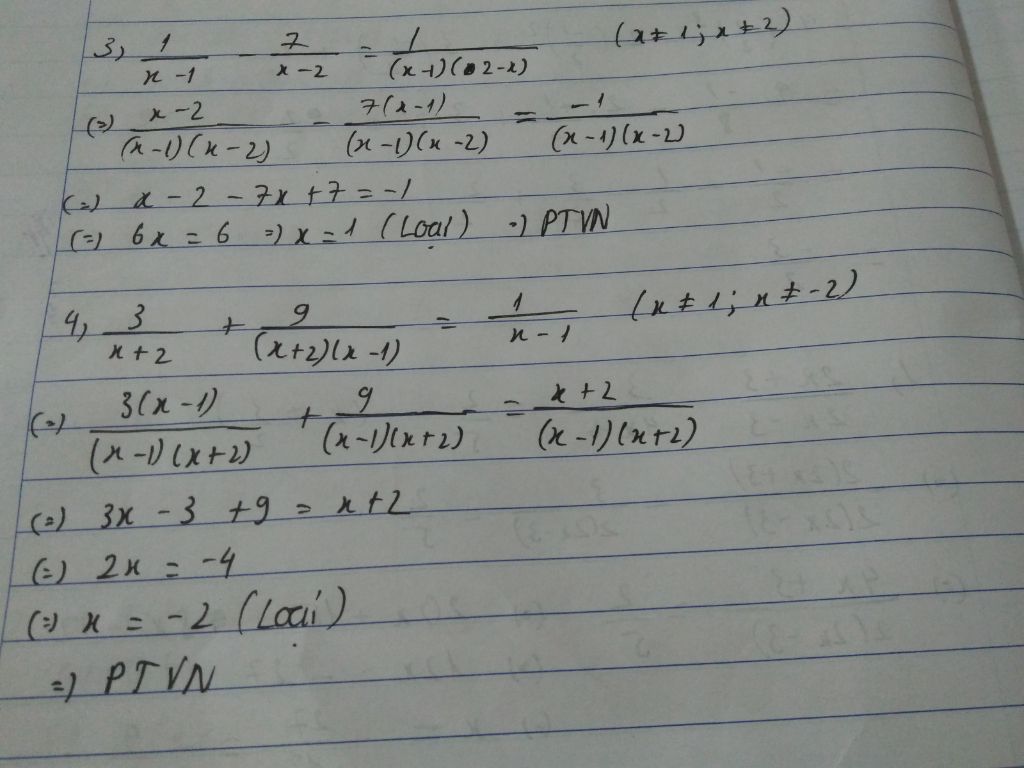 3, 1/(x-1) - 7/(x-2) = 1/((x-1)(2-x)) (x≠1; x≠2)
(=) (x-2)/((x-1)(x-2)) - 7(x-1)/((x-1)(x-2)) = -1/((x-1)(x-2))
(=) x - 2 - 7x + 7 = -1
(=) 6x = 6 =) x = 1 (Loại) =) PTVN
4, 3/(x+2) + 9/((x+2)(x-1)) = 1/(x-1) (x≠1; x≠-2)
(=) 3(x-1)/((x-1)(x+2)) + 9/((x-1)(x+2)) = (x+2)/((x-1)(x+2))
(=) 3x - 3 + 9 = x+2
(=) 2x = -4
(=) x = -2 (Loại)
=) PTVN